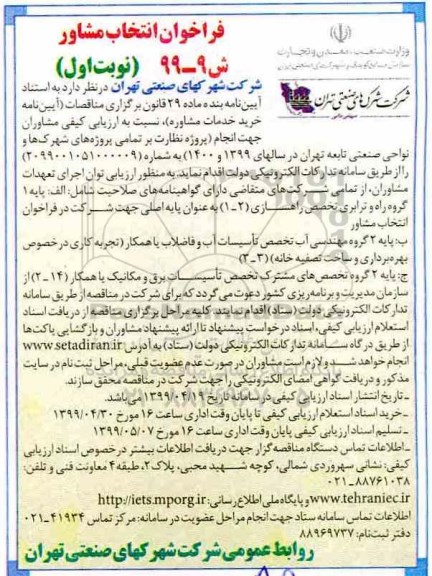 فراخوان انتخاب مشاور
ش ۹ــ۹۹ (نوبت اول)
وزارت صنعت، معدن و تجارت
شرکت شهرکهای صنعتی تهران
شرکت شهرکهای صنعتی تهران در نظر دارد به استناد
آیین‌نامه بند ه ماده ۲۹ قانون برگزاری مناقصات (آیین‌نامه
خرید خدمات مشاوره)، نسبت به ارزیابی کیفی مشاوران
جهت انجام (پروژه نظارت بر تمامی پروژه‌های شهرک‌ها و
نواحی صنعتی تابعه تهران در سالهای ۱۳۹۹ و ۱۴۰۰) به شماره (۲۰۹۹۰۰۱۰۵۱۰۰۰۰۰۹)
را از طریق سامانه تدارکات الکترونیکی دولت اقدام نماید. به منظور ارزیابی توان اجرای تعهدات
مشاوران، از تمامی شرکت‌های متقاضی دارای گواهینامه‌های صلاحیت شامل: الف: پایه ۱
گروه راه و ترابری تخصص راهسازی (۲-۱) به عنوان پایه اصلی جهت شرکت در فراخوان
انتخاب مشاور
ب: پایه ۲ گروه مهندسی آب تخصص تأسیسات آب و فاضلاب یا همکار (تجربه کاری در خصوص
بهره‌برداری و ساخت تصفیه خانه) (۳-۲)
ج: پایه ۲ گروه تخصص‌های مشترک تخصص تأسیسات برق و مکانیک یا همکار (۱۴-۲) از
سازمان مدیریت و برنامه‌ریزی کشور دعوت می‌گردد که برای شرکت در مناقصه از طریق سامانه
تدارکات الکترونیکی دولت (ستاد) اقدام نمایند. کلیه مراحل برگزاری مناقصه از دریافت اسناد
استعلام ارزیابی کیفی، اسناد درخواست پیشنهاد تا ارائه پیشنهاد مشاوران و بازگشایی پاکت‌ها
از طریق درگاه سامانه تدارکات الکترونیکی دولت (ستاد) به آدرس www.setadiran.ir
انجام خواهد شد و لازم است مشاوران در صورت عدم عضویت قبلی، مراحل ثبت نام در سایت
مذکور و دریافت گواهی امضای الکترونیکی را جهت شرکت در مناقصه محقق سازند.
ـ تاریخ انتشار اسناد ارزیابی کیفی در سامانه تاریخ ۱۳۹۹/۰۴/۱۹ می‌باشد.
ـ خرید اسناد استعلام ارزیابی کیفی تا پایان وقت اداری ساعت ۱۶ مورخ ۱۳۹۹/۰۴/۳۰
ـ تسلیم اسناد ارزیابی کیفی پایان وقت اداری ساعت ۱۶ مورخ ۱۳۹۹/۰۵/۰۷
ـ اطلاعات تماس دستگاه مناقصه‌گزار جهت دریافت اطلاعات بیشتر در خصوص اسناد ارزیابی
کیفی: نشانی سهروردی شمالی، کوچه شهید محبی، پلاک ۲، طبقه ۴ معاونت فنی و تلفن:
۰۲۱-۸۸۷۶۱۰۳۸
www.tehraniec.ir و پایگاه ملی اطلاع رسانی: http://iets.mporg.ir
اطلاعات تماس سامانه ستاد جهت انجام مراحل عضویت در سامانه: مرکز تماس ۴۱۹۳۴-۰۲۱
دفتر ثبت‌نام: ۸۸۹۶۹۷۳۷
روابط عمومی شرکت شهرکهای صنعتی تهران